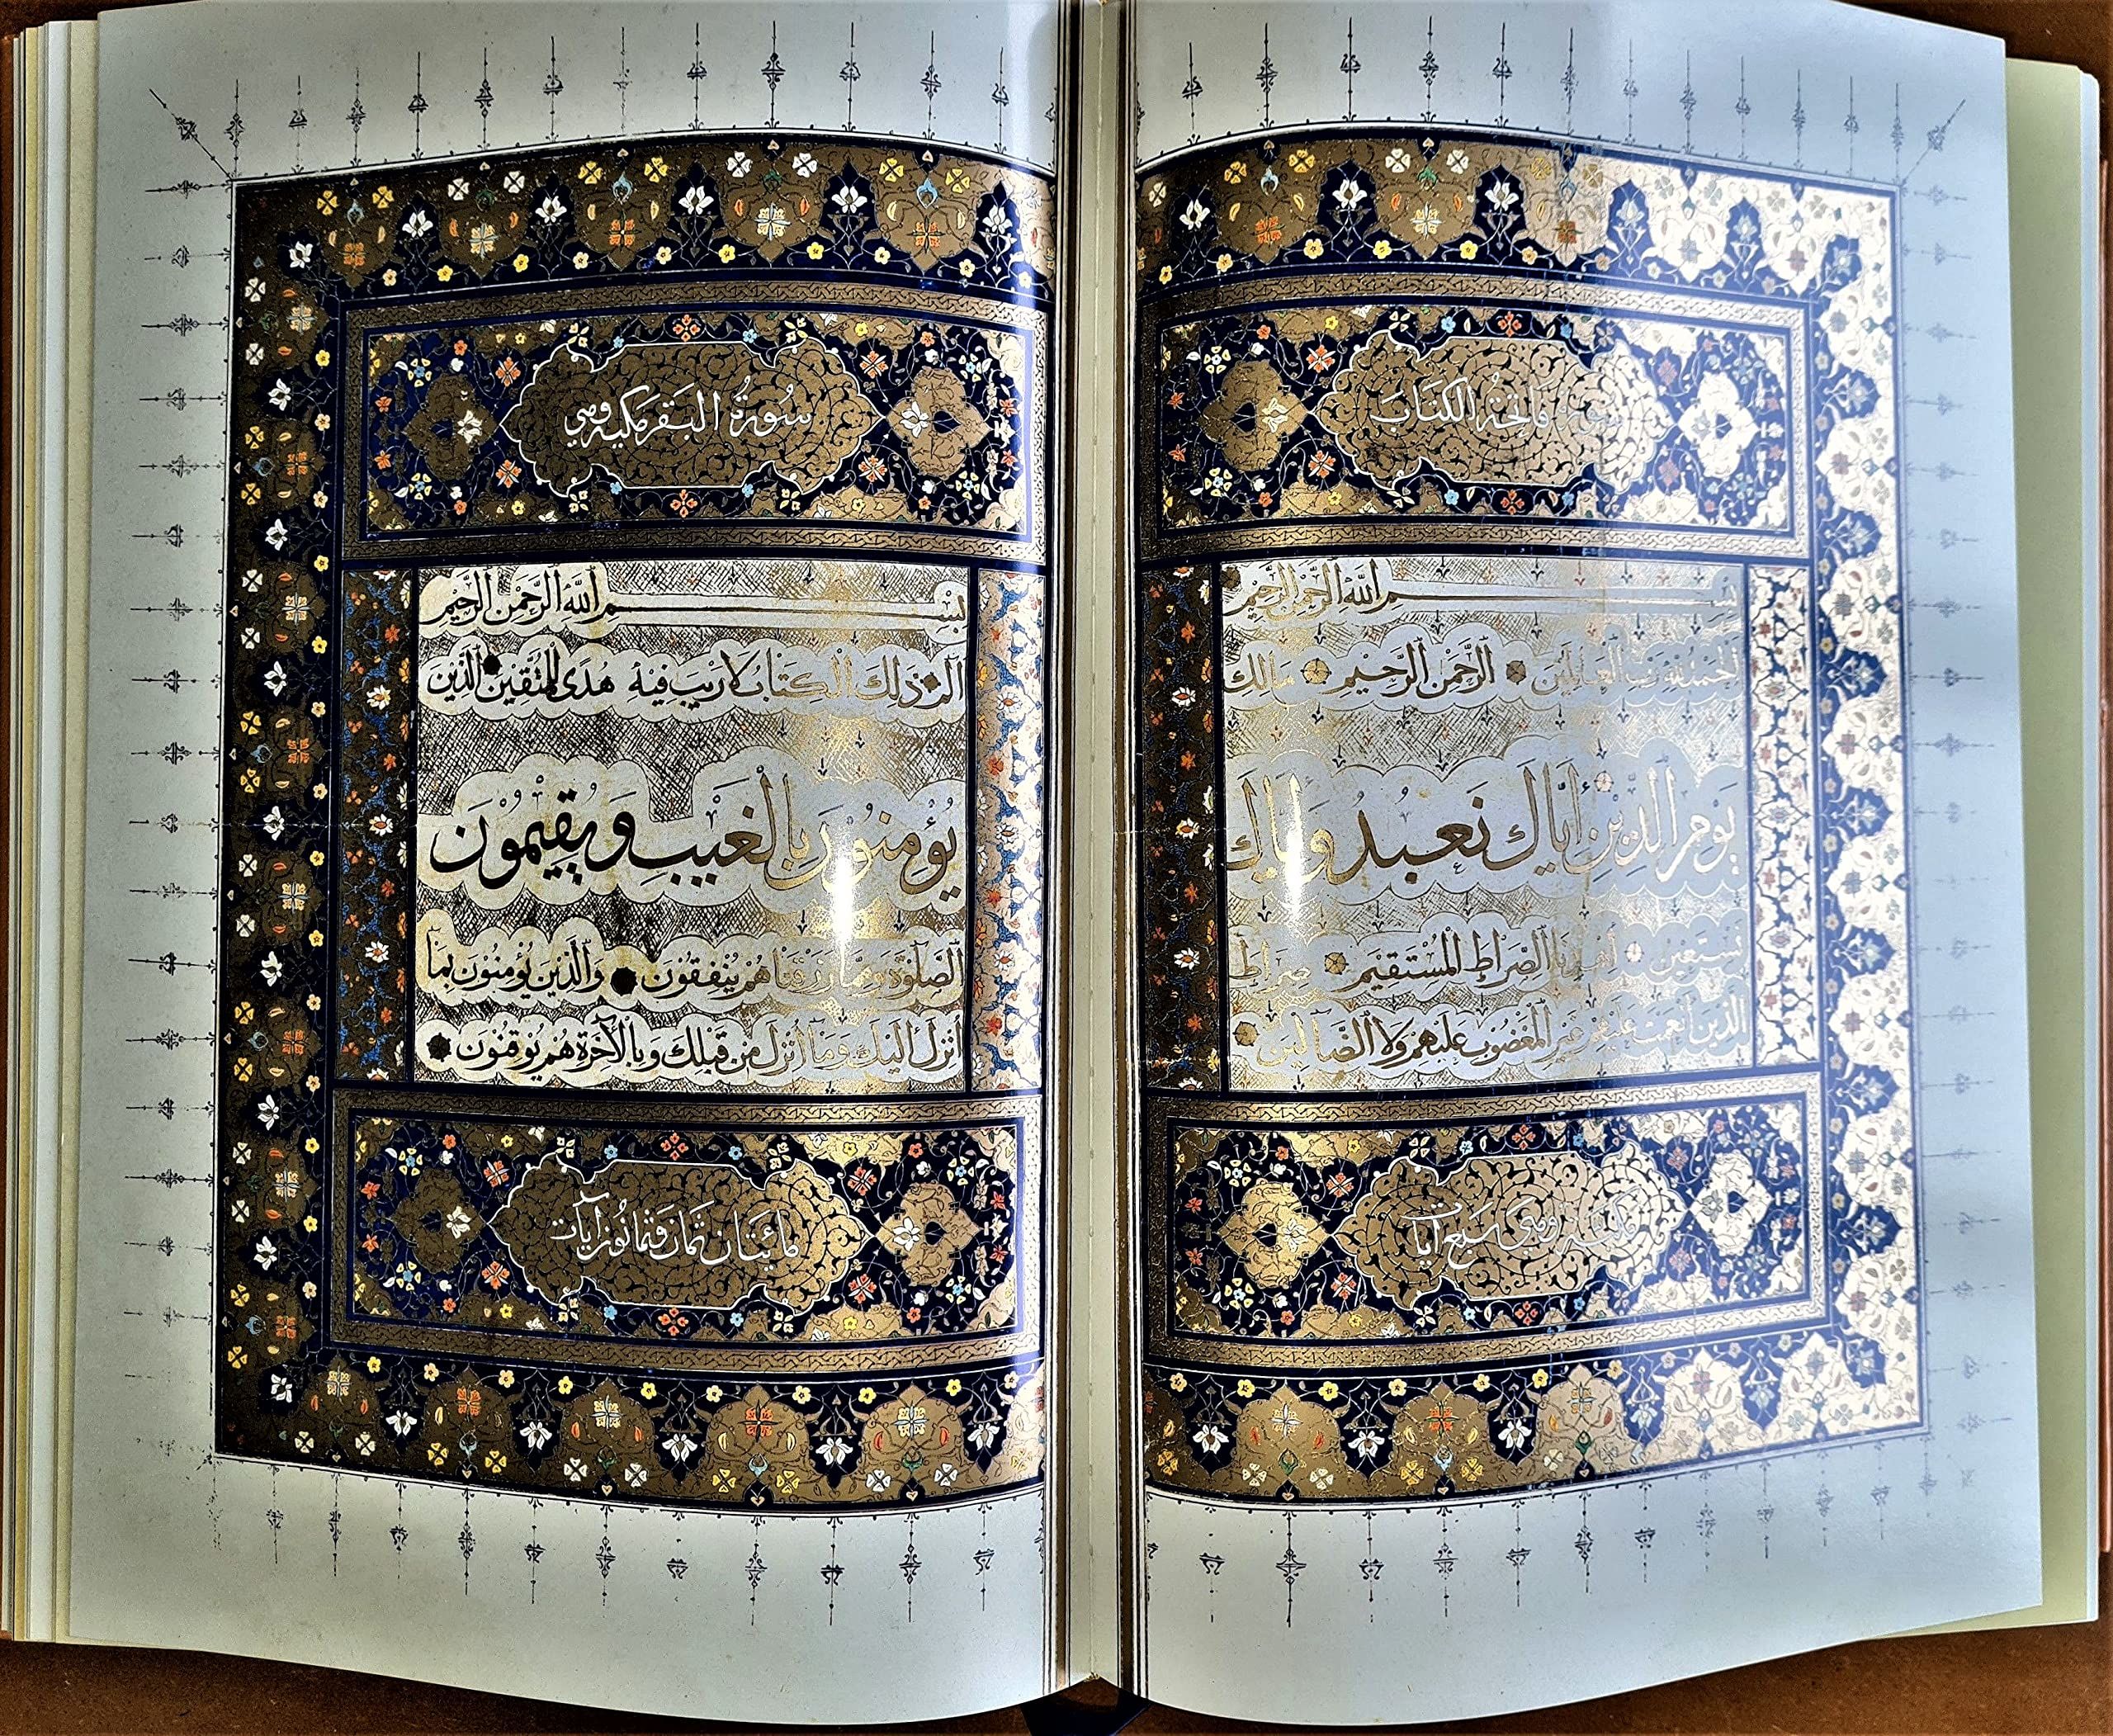 فاتحة الكتاب
بسم الله الرحمن الرحيم
الحمد لله رب العالمين الرحمن الرحيم مالك
يوم الدين اياك نعبد واياك
نستعين اهدنا الصراط المستقيم صراط
الذين انعمت عليهم غير المغضوب عليهم ولا الضالين
مكية وهي سبع ايات
سورة البقر مكية وهي
بسم الله الرحمن الرحيم
الم ذلك الكتاب لا ريب فيه هدى للمتقين الذين
يؤمنون بالغيب ويقيمون
الصلوة ومما رزقناهم ينفقون والذين يؤمنون بما
انزل اليك وما انزل من قبلك وبالآخرة هم يوقنون
مائيتان ثمان وثمانون آيات